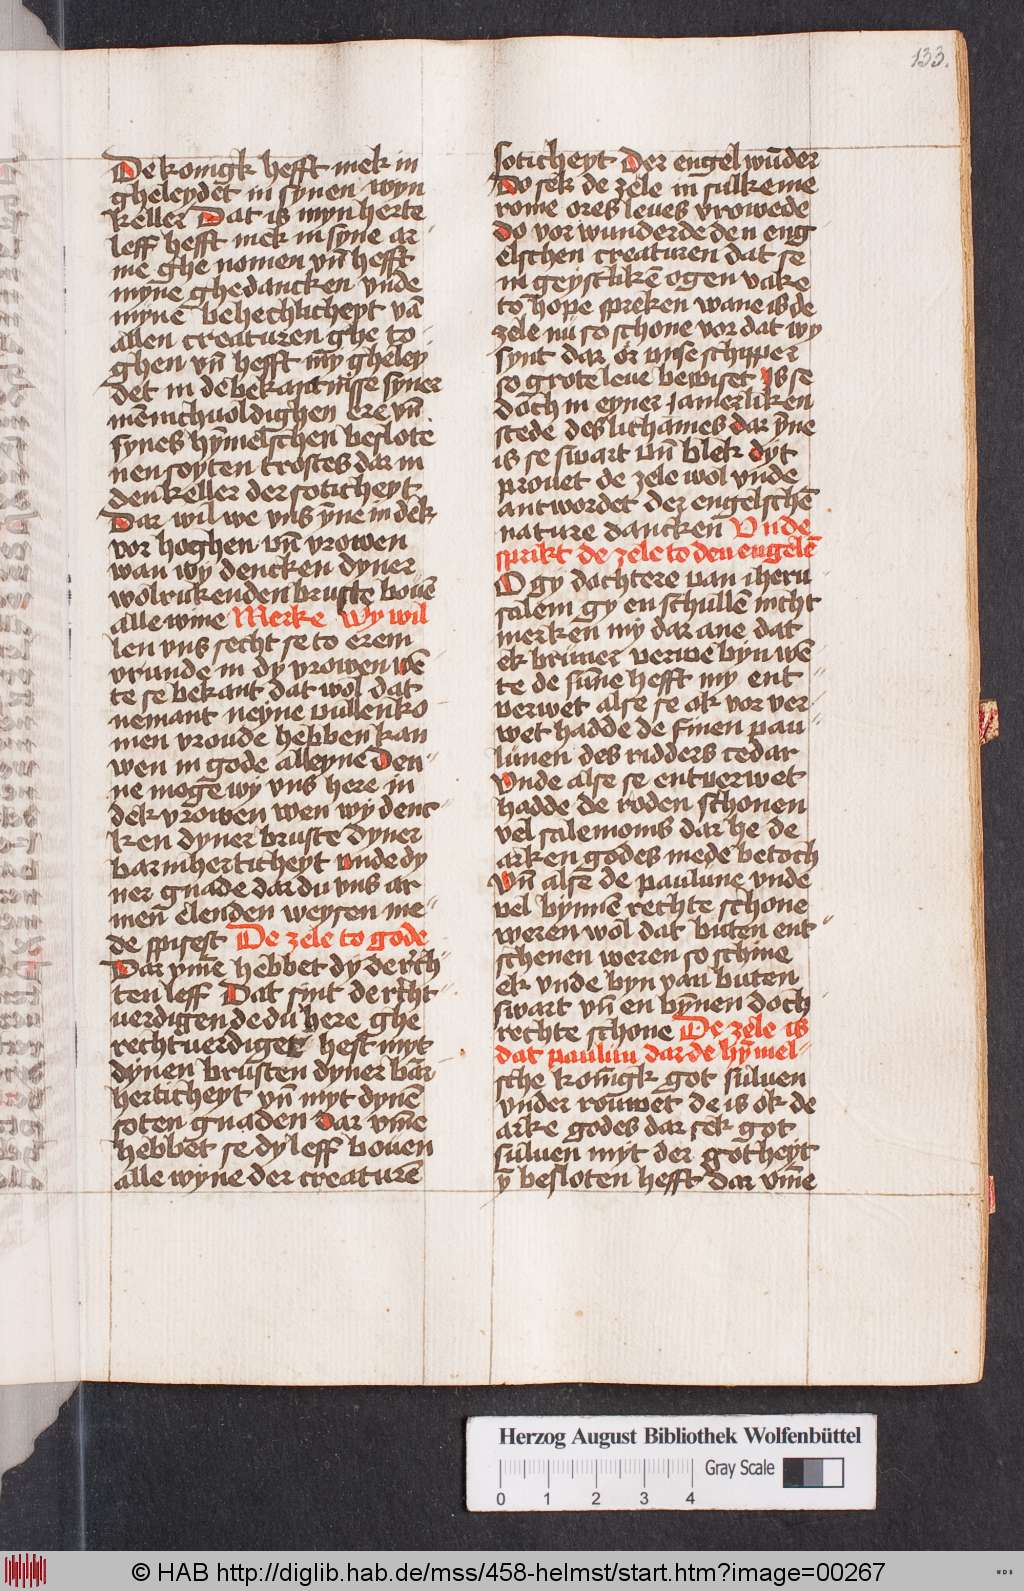 133.
De konigk hefft mek in
gheleydet in synen wyn
keller Dat is myn herte
leff hefft mek in syne ar-
me ghe nomen vn̄ hefft
myne ghedancken vnde
myne behechlicheyt vā
allen creaturen ghe to-
ghen vn̄ hefft my gheley-
det in de bekantnisse syner
mēnichuoldighen ere vn̄
synes hȳmelschen beslote
nen soyten trostes dar in
den keller der soticheyt
Dar wil we vns ȳne in dek
vor hoghen vn̄ vrowen
wan wy dencken dyner
wolrukenden bruste bouē
alle wine Merke Wy wil
len vns secht se to erem
vrunde in dy vrowen wē
te se bekant dat wol dat
nemant neyne vullenko
men vroude hebben kan
wen in gode alleyne Den-
ne moge wy vns here in
dek vrowen wen wy denc-
ken dyner bruste dyner
barmherticheyt vnde dy
ner gnade dar du vns ar
men elenden weysen me-
de spisest De zele to gode
Dar vm̄e hebbet dy de rech-
ten leff Dat sint de recht-
uerdigen de du here ghe
rechtuerdiget hest myt
dynen brusten dyner bar
herticheyt vn̄ myt dynē
soten gnaden Dar vm̄e
hebbet se dy leff bouen
alle wyne der creaturē
soticheyt Der engel wūder
Do sek de zele in sulkeme
rome ores leues vrowede
do vor wunderde den eng
elschen creaturen dat se
in geystlikē ogen vake
to hope spreken wane is de
zele nu so schone vor dat wy
synt dar or vnse schipper
so grote leue bewiset Js se
doch in eyner jamerliken
stede des lichames dar ȳne
is se swart vn̄ blek dyt
prouet de zele wol vnde
antwordet der engelschē
nature dancken Vnde
sprikt de zele to den engelē
O gy dochtere van iheru
salem gy en schullē nicht
merken my dar ane dat
ek bruner verwe byn wē-
te de sūne hefft my ent-
verwet alse se ok vor ver-
wet hadde de finen pau
lunen des ridders cedar
Vnde alse se entverwet
hadde de roden schonen
vel salemonis dar he de
arken godes mede betoch
Vn̄ alse de paulune vnde
vel bynnē rechte schone
weren wol dat buten ent-
schenen weren so schine
ek vnde byn van buten
swart vn̄ en bȳnen doch
rechte schone De zele is
dat paulun dar de hȳmel-
sche konigk got suluen
vnder rouwet de is ok de
arke godes dar sek got
suluen myt der gotheyt
ȳ besloten hefft dar vm̄e
Herzog August Bibliothek Wolfenbüttel
Gray Scale
0 1 2 3 4
© HAB http://diglib.hab.de/mss/458-helmst/start.htm?image=00267